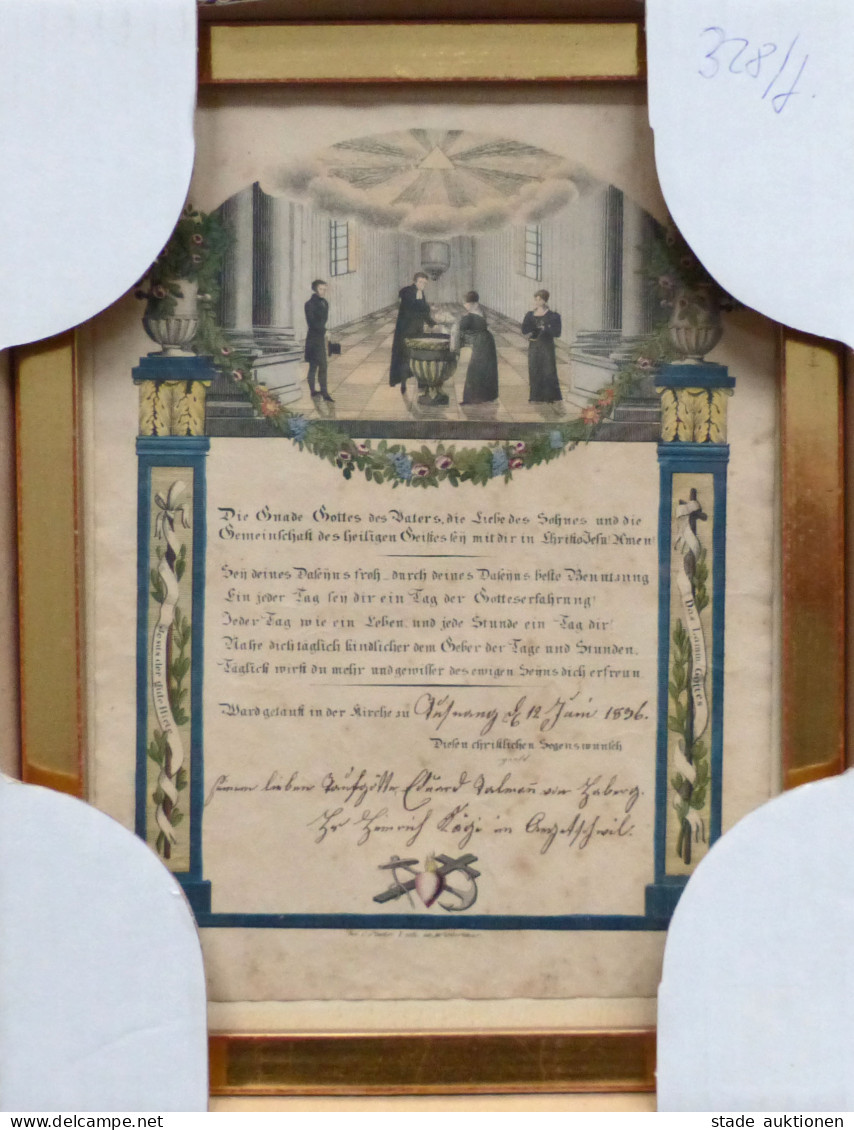 328/
Die Gnade Gottes des Vaters, die Liebe des Sohnes und die
Gemeinschaft des heiligen Geistes sey mit dir in Christo Jesu! Amen!
Sey deines Daseyns froh durch deines Daseyns beste Benutzung
Ein jeder Tag sey dir ein Tag der Gotteserfahrung!
Jeder Tag wie ein Leben, und jede Stunde ein Tag dir!
Nahe dich täglich kindlicher dem Geber der Tage und Stunden,
Täglich wirst du mehr und gewisser des ewigen Seyns dich erfreun
Ward getauft in der Kirche zu Dußnang d 12 Juni 1836.
Diesen christlichen Segenswunsch
seinem lieben Taufgötti Eduard von
Heinrich Kägi in
Jesus der gute Hirte
Das Lamm Gottes
stade auktionen